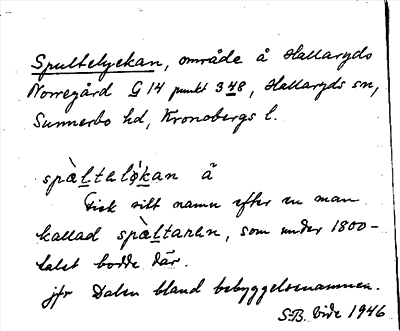 Spultelyckan, område å Hallaryds
Norregård G 14 punkt 348, Hallaryds sn,
Sunnerbo hd, Kronobergs l.
spàltalø̀kan å
Fick sitt namn efter en man
kallad spàltaren, som under 1800-
talet bodde där.
jfr Dalen bland bebyggelsenamnen.
S-B. Vide 1946